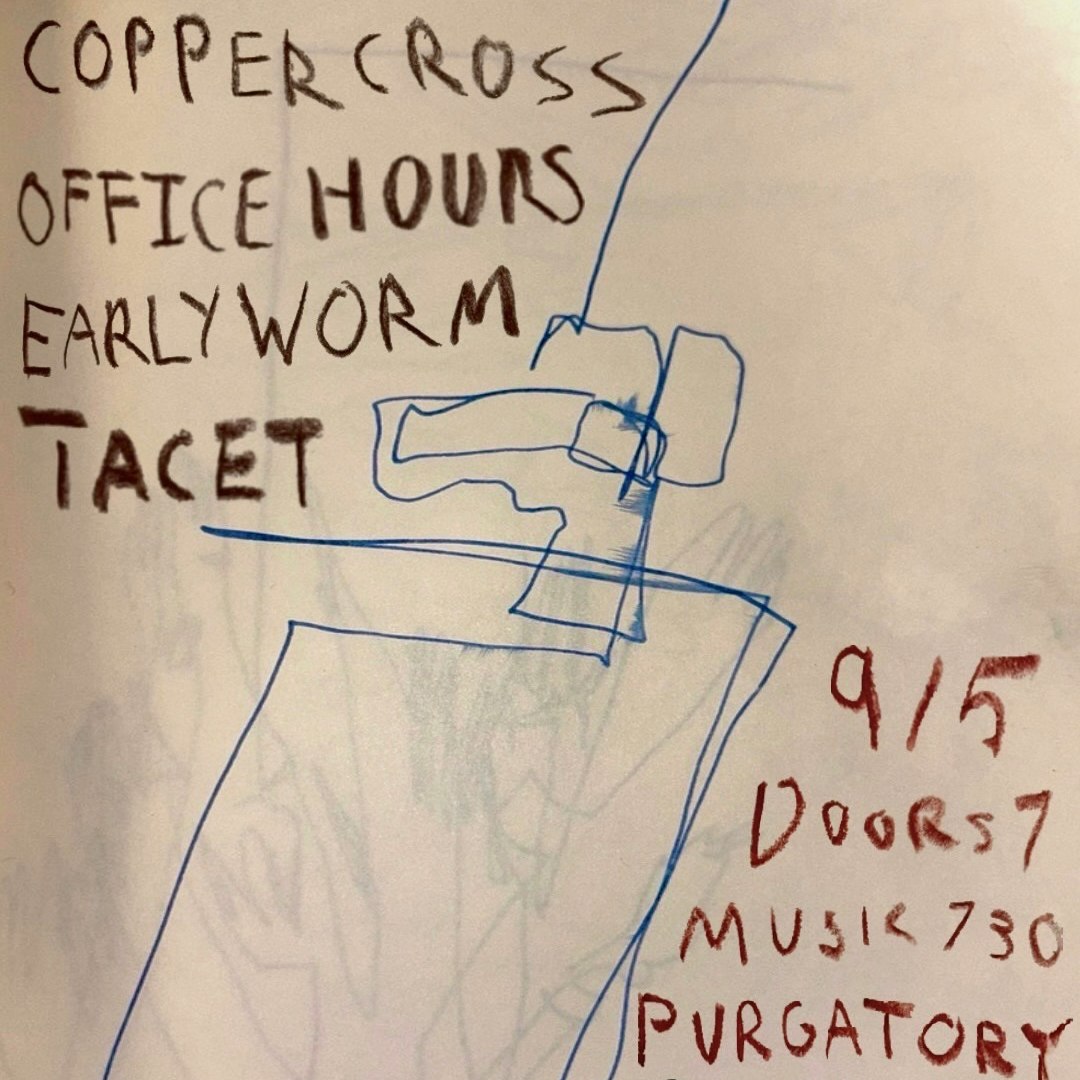 COPPER CROSS
OFFICE HOURS
EARLY WORM
TACET
9/5
DOORS 7
MUSIC 730
PURGATORY